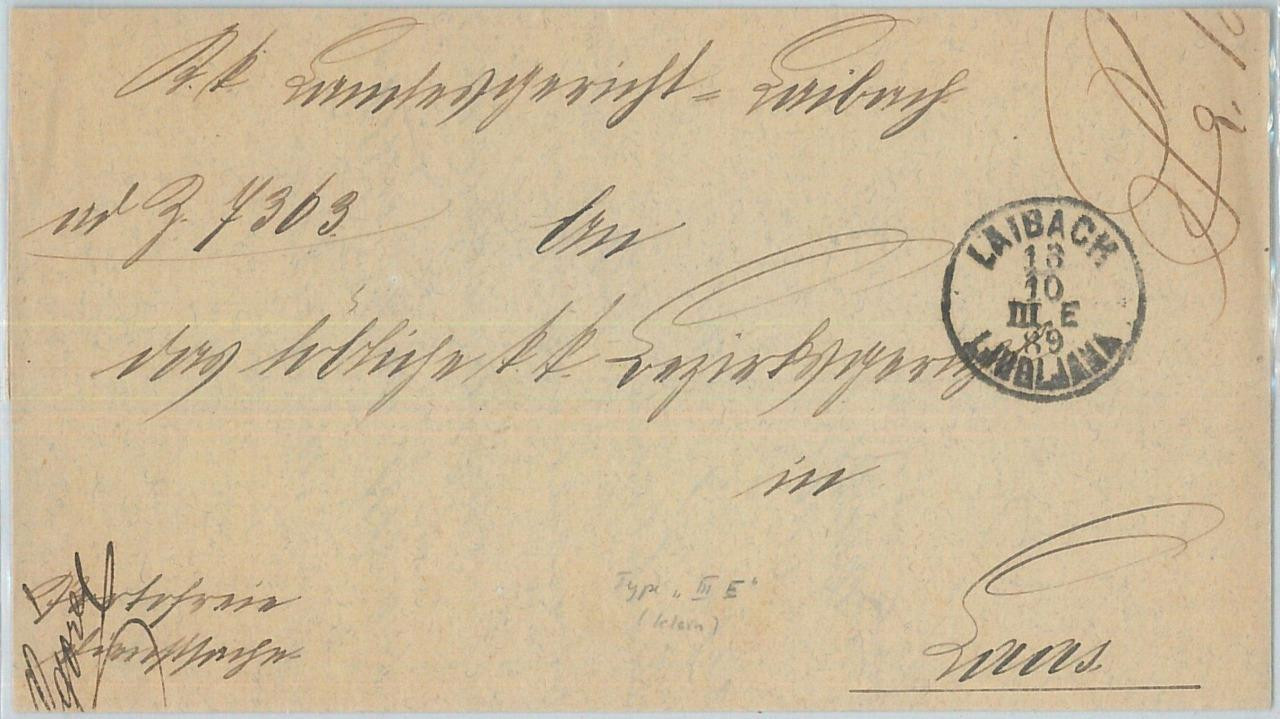 K. k. Landesgericht = Laibach
ad Z. 7363
An
das löbliche k. k. Bezirksgericht
in
Laas
LAIBACH
13
10
III. E
89
LJUBLJANA
Portofreie
Dienstsache
Type „III E“
(klein)